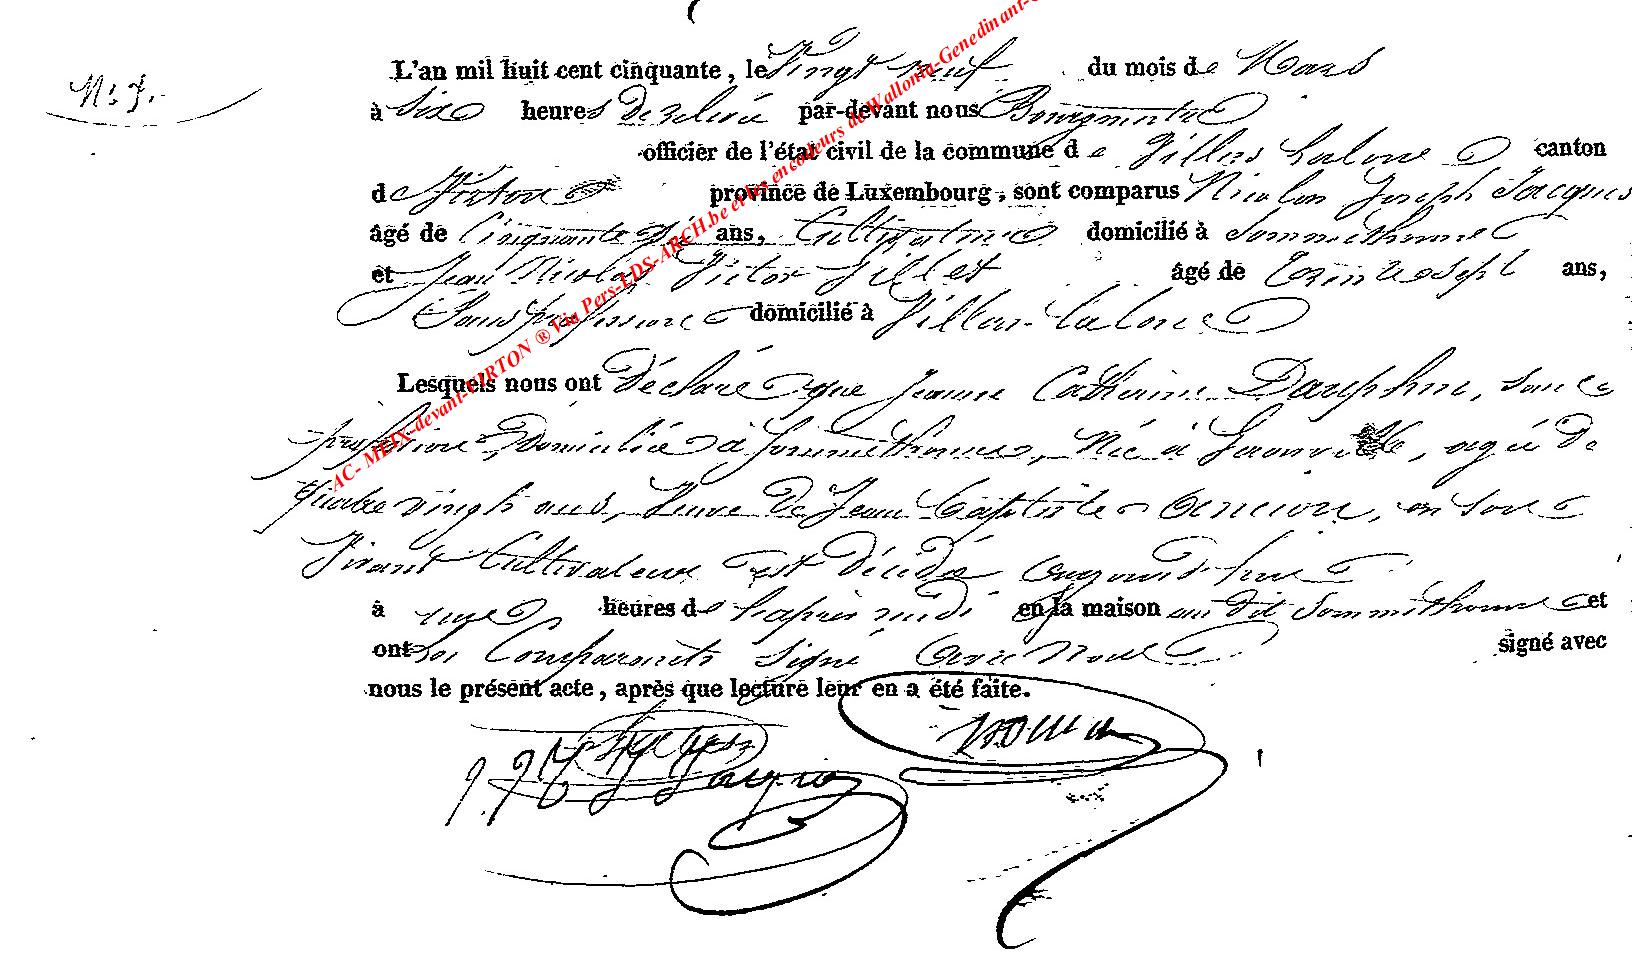 L'an mil huit cent cinquante, le Vingt neuf du mois de Mars
N: 7.
à six heures de relevée par-devant nous Bourgmestre
officier de l'état civil de la commune de Villers Laloue canton
de Virton province de Luxembourg, sont comparus Nicolas Joseph Jacques
âgé de Cinquante ans, Cultivateur domicilié à Sommethonne
et Jean Nicolas Victor Gillet âgé de trente sept ans,
Sans profession domicilié à Villers-laloue
Lesquels nous ont déclaré que Jeanne Catherine Dauphin, sans
profession, domiciliée à Sommethonne, Née à, agée de
quatre vingt ans, Veuve de Jean Baptiste, en son
Vivant Cultivateur est décédé aujourd'hui
à une heures de l'après midi en la maison au dit Sommethonne et
ont les Comparants Signé Avec Nous signé avec
nous le présent acte, après que lecture leur en a été faite.
AC- MEIX-devant-VIRTON ® Via Pers-LDS-ARCH.be et les encodeurs de Wallonia-Genedinant-